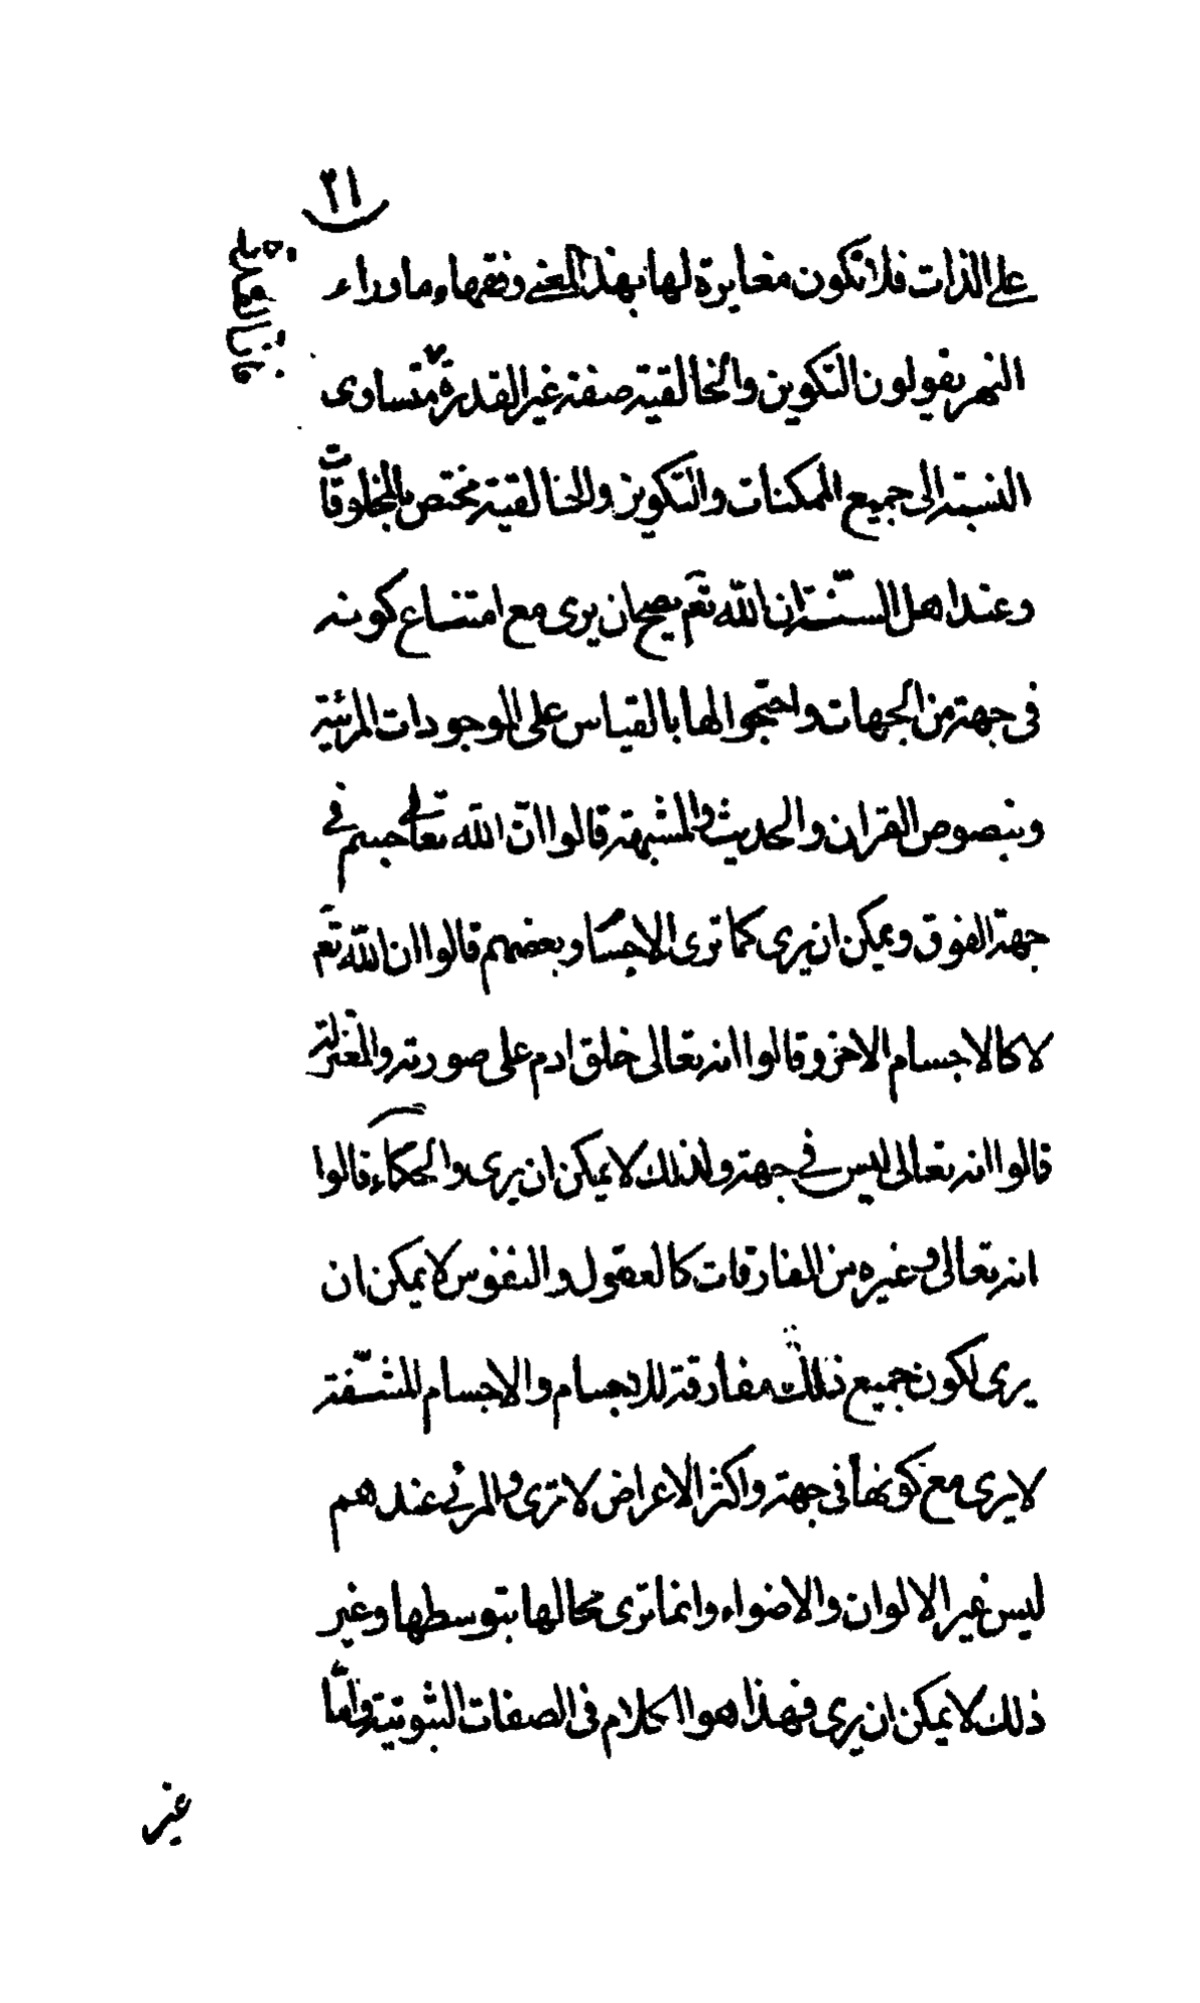 ٢١
على الذات فلا تكون مغايرة لها بهذا المعنى وفقهاء ما وراء
النهر يقولون التكوين والخالقية صفة غير القدرة متساوى
فان القدرة
النسبة الى جميع الممكنات والتكوين والخالقية مختص بالمخلوقات
وعند اهل السنّة ان اللّه تعم يصح ان يرى مع امتناع كونه
فى جهة من الجهات واحتجوا لها بالقياس على الموجودات المرئية
وبنصوص القران والحديث والمشبهة قالوا انّ اللّه تعالى جسم فى
جهة الفوق ويمكن ان يرى كما ترى الاجسا وبعضهم قالوا ان اللّه تعم
لا كالاجسام الاخر وقالوا انه تعالى خلق ادم على صورته والمعتزلة
قالوا انه تعالى ليس فى جهة ولذلك لا يمكن ان يرى والحكماء قالوا
انه تعالى وغيره من المفارقات كالعقول والنفوس لا يمكن ان
يرى لكون جميع ذلك مفارقة للاجسام والاجسام المشفّة
لا يرى مع كونها فى جهة واكثر الاعراض لا ترى والمرئى عندهم
ليس غير الالوان والاضواء وانما ترى محالها بتوسطها وغير
ذلك لا يمكن ان يرى فهذا هو الكلام فى الصفات الثبوتية وامّا
غير